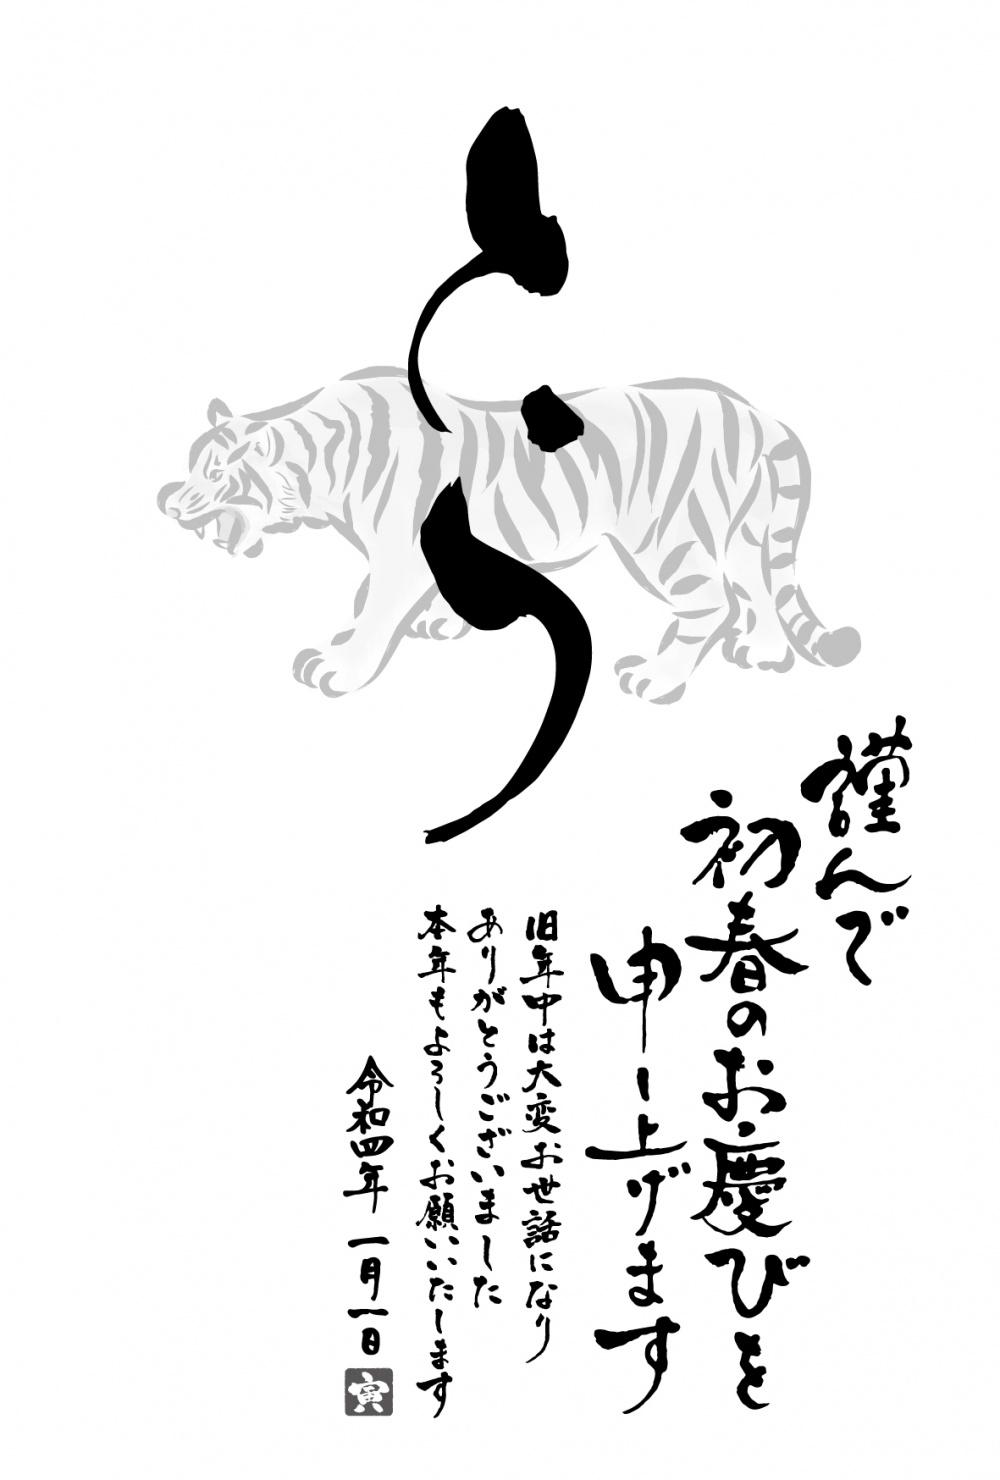 とら
謹んで
初春のお慶びを
申し上げます
旧年中は大変お世話になり
ありがとうございました
本年もよろしくお願いいたします
令和四年 一月一日
寅